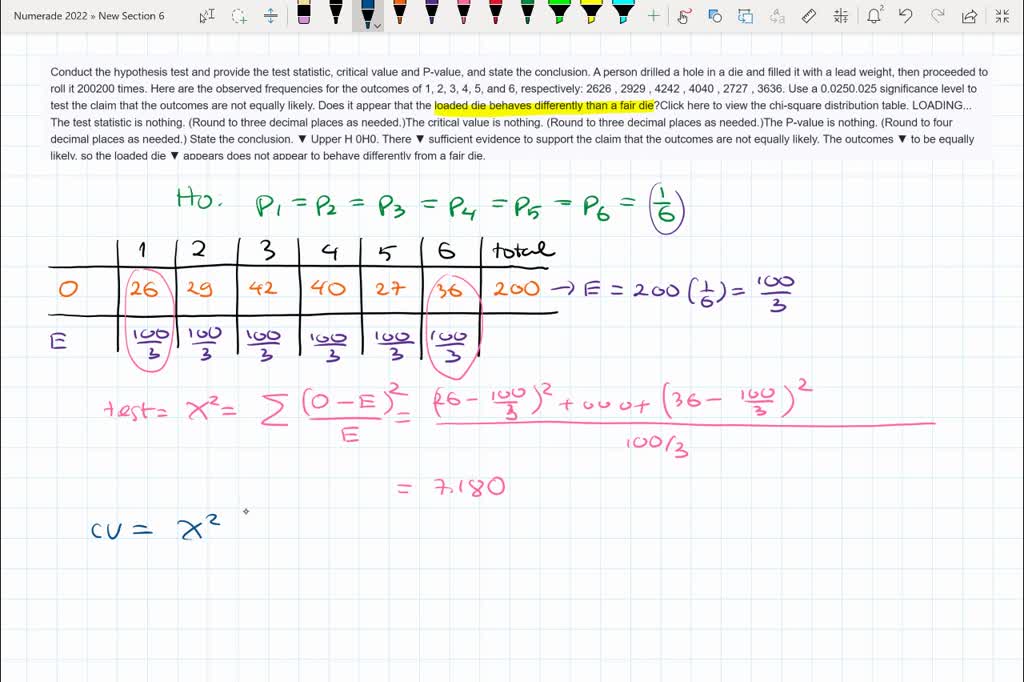 Numerade 2022 » New Section 6
2
Conduct the hypothesis test and provide the test statistic, critical value and P-value, and state the conclusion. A person drilled a hole in a die and filled it with a lead weight, then proceeded to
roll it 200200 times. Here are the observed frequencies for the outcomes of 1, 2, 3, 4, 5, and 6, respectively: 2626 , 2929 , 4242 , 4040 , 2727 , 3636. Use a 0.0250.025 significance level to
test the claim that the outcomes are not equally likely. Does it appear that the loaded die behaves differently than a fair die?Click here to view the chi-square distribution table. LOADING...
The test statistic is nothing. (Round to three decimal places as needed.)The critical value is nothing. (Round to three decimal places as needed.)The P-value is nothing. (Round to four
decimal places as needed.) State the conclusion. ▼ Upper H 0H0. There ▼ sufficient evidence to support the claim that the outcomes are not equally likely. The outcomes ▼ to be equally
likely, so the loaded die ▼ appears does not appear to behave differently from a fair die.
Ho: P₁ = P₂ = P₃ = P₄ = P₅ = P₆ = (1/6)
1 2 3 4 5 6 total
O 26 29 42 40 27 36 200 → E = 200 (1/6) = 100/3
E 100/3 100/3 100/3 100/3 100/3 100/3
test = X² = Σ (O - E)²/E = (26 - 100/3)² + ooo + (36 - 100/3)²
100/3
= 7.180
CV = X²